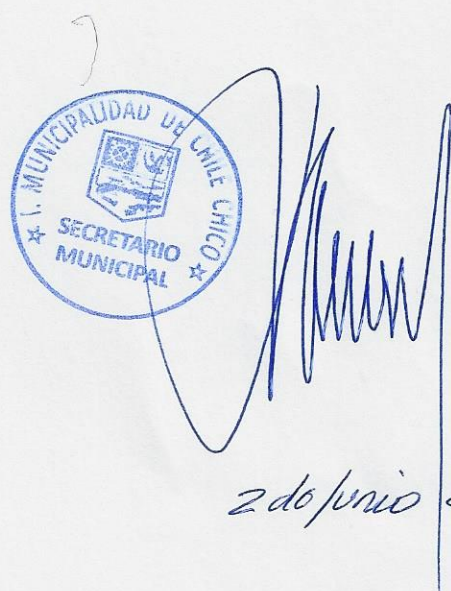 I. MUNICIPALIDAD DE CHILE CHICO
SECRETARIO
MUNICIPAL
2 de Junio